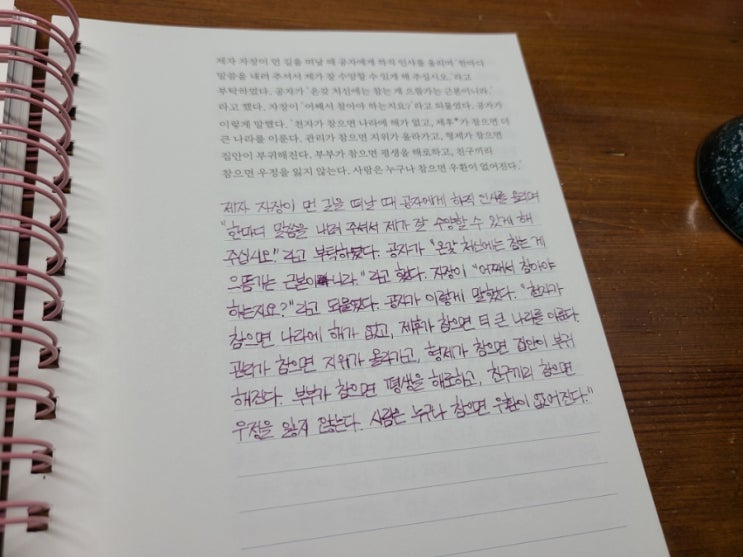 제자 자장이 먼 길을 떠날 때 공자에게 하직 인사를 올리며 '한마디
말씀을 내려 주셔서 제가 잘 수양할 수 있게 해 주십시오.'라고
부탁하였다. 공자가 '온갖 처신에는 참는 게 으뜸가는 근본이니라.'
라고 했다. 자장이 '어째서 참아야 하는지요?'라고 되물었다. 공자가
이렇게 말했다. '천자가 참으면 나라에 해가 없고, 제후*가 참으면 더
큰 나라를 이룬다. 관리가 참으면 지위가 올라가고, 형제가 참으면
집안이 부귀해진다. 부부가 참으면 평생을 해로하고, 친구끼리
참으면 우정을 잃지 않는다. 사람은 누구나 참으면 우환이 없어진다.'
제자 자장이 먼 길을 떠날 때 공자에게 하직 인사를 올리며
"한마디 말씀을 내려 주셔서 제가 잘 수양할 수 있게 해
주십시오."라고 부탁하였다. 공자가 "온갖 처신에는 참는 게
으뜸가는 근본이니라."라고 했다. 자장이 "어째서 참아야
하는지요?"라고 되물었다. 공자가 이렇게 말했다. "천자가
참으면 나라에 해가 없고, 제후가 참으면 더 큰 나라를 이룬다.
관리가 참으면 지위가 올라가고, 형제가 참으면 집안이 부귀
해진다. 부부가 참으면 평생을 해로하고, 친구끼리 참으면
우정을 잃지 않는다. 사람은 누구나 참으면 우환이 없어진다."